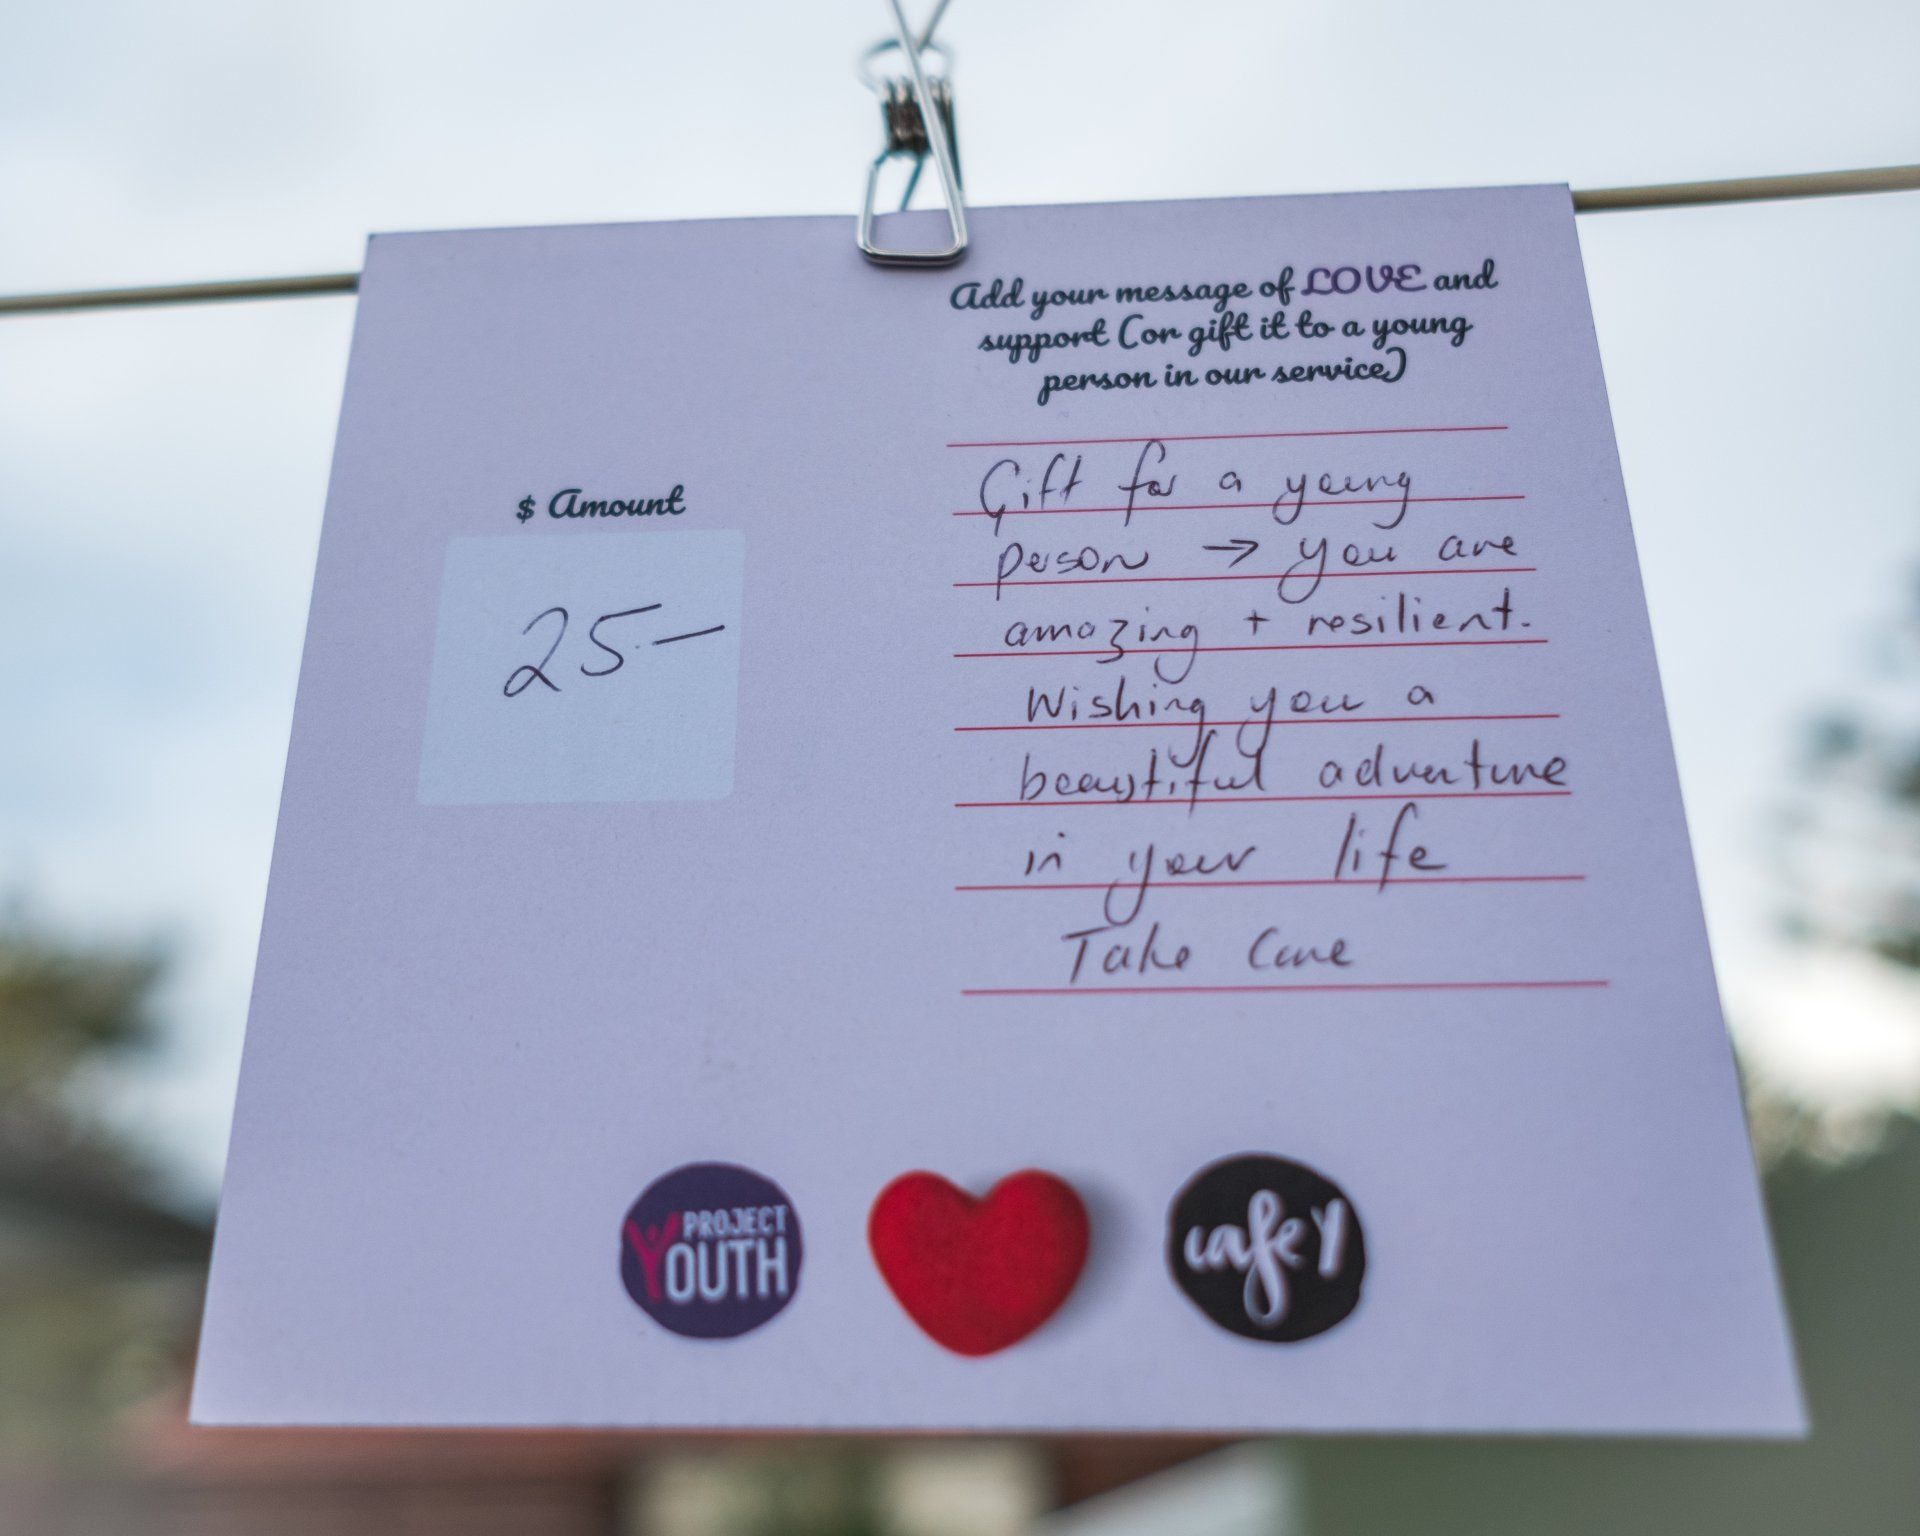 Add your message of LOVE and
support (or gift it to a young
person in our service)
$ Amount
25.—
Gift for a young
person → you are
amazing + resilient.
Wishing you a
beautiful adventure
in your life
Take Care
PROJECT
YOUTH
cafe y